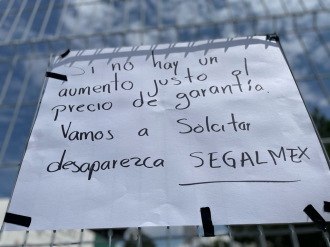 Si no hay un
aumento justo al
precio de garantía.
Vamos a Solicitar
desaparezca SEGALMEX